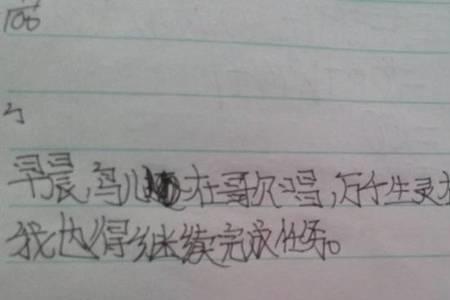 早晨,鸟儿在歌唱,万千生灵在
我也得继续完成任务。